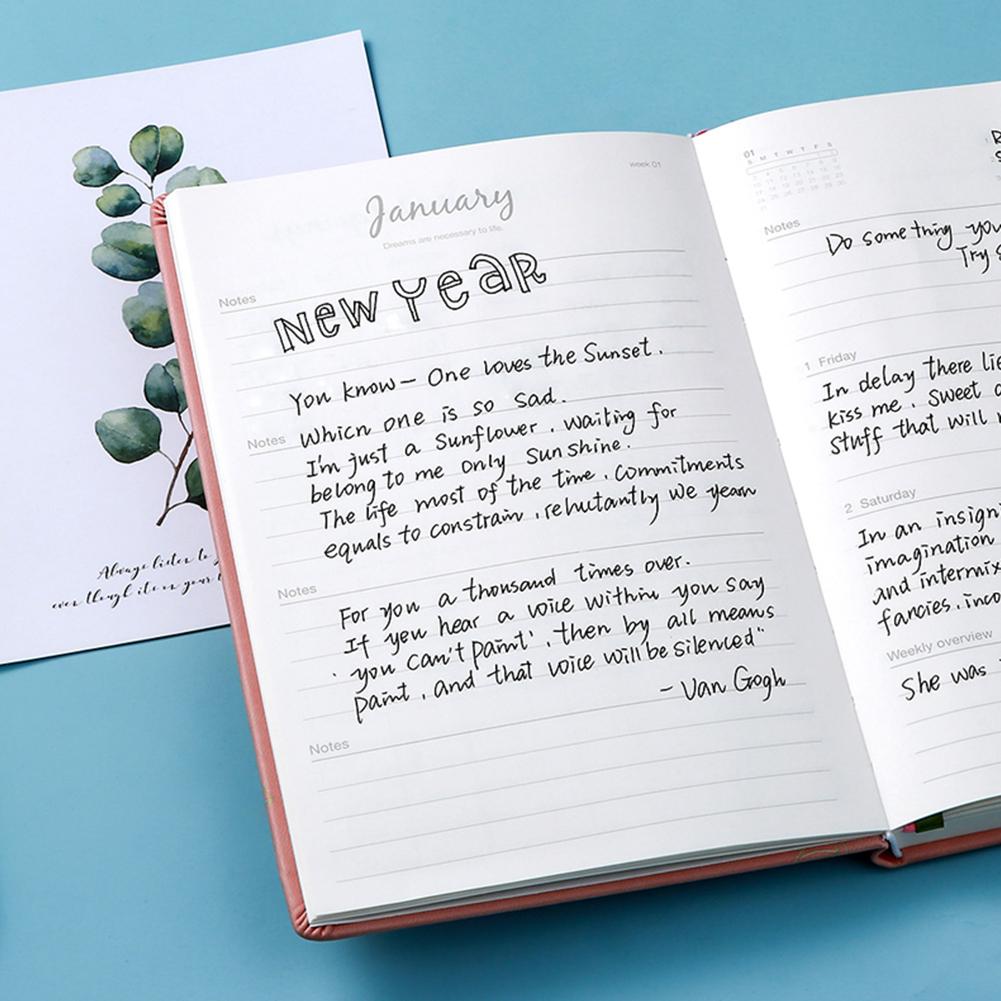 week 01
January
Dreams are necessary to life.
Notes
New Year
You know — One loves the Sunset.
Notes
Which one is so sad.
I'm just a Sunflower. waiting for
belong to me only Sunshine.
The life most of the time. Commitments
equals to constrain, rehutantly we yearn
Notes
For you a thousand times over.
If you hear a voice within you say
'you can't paint', then by all means
paint, and that voice will be silenced"
— Van Gogh
Notes
01
S M T W T F S
Notes
Do something you
Try
1 Friday
In delay there lie
kiss me. Sweet
Stuff that will
2 Saturday
In an insign
imagination
and intermix
fancies. inco
Weekly overview
She was
Always listen to
even though it is on your